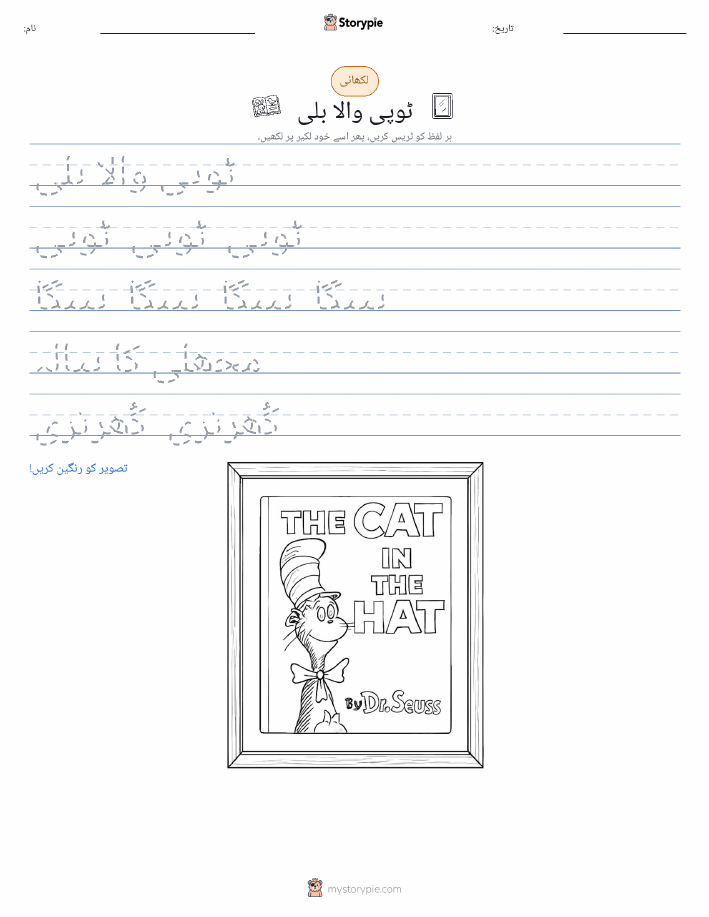 Storypie
نام:
تاریخ:
لکھائی
ٹوپی والا بلی
ہر لفظ کو ٹریس کریں، پھر اسے خود لکیر پر لکھیں۔
ٹوپی والا بلی
ٹوپی ٹوپی ٹوپی
مچھلی کا پیالہ
تصویر کو رنگین کریں!
THE CAT
IN
THE
HAT
By Dr. Seuss
mystorypie.com